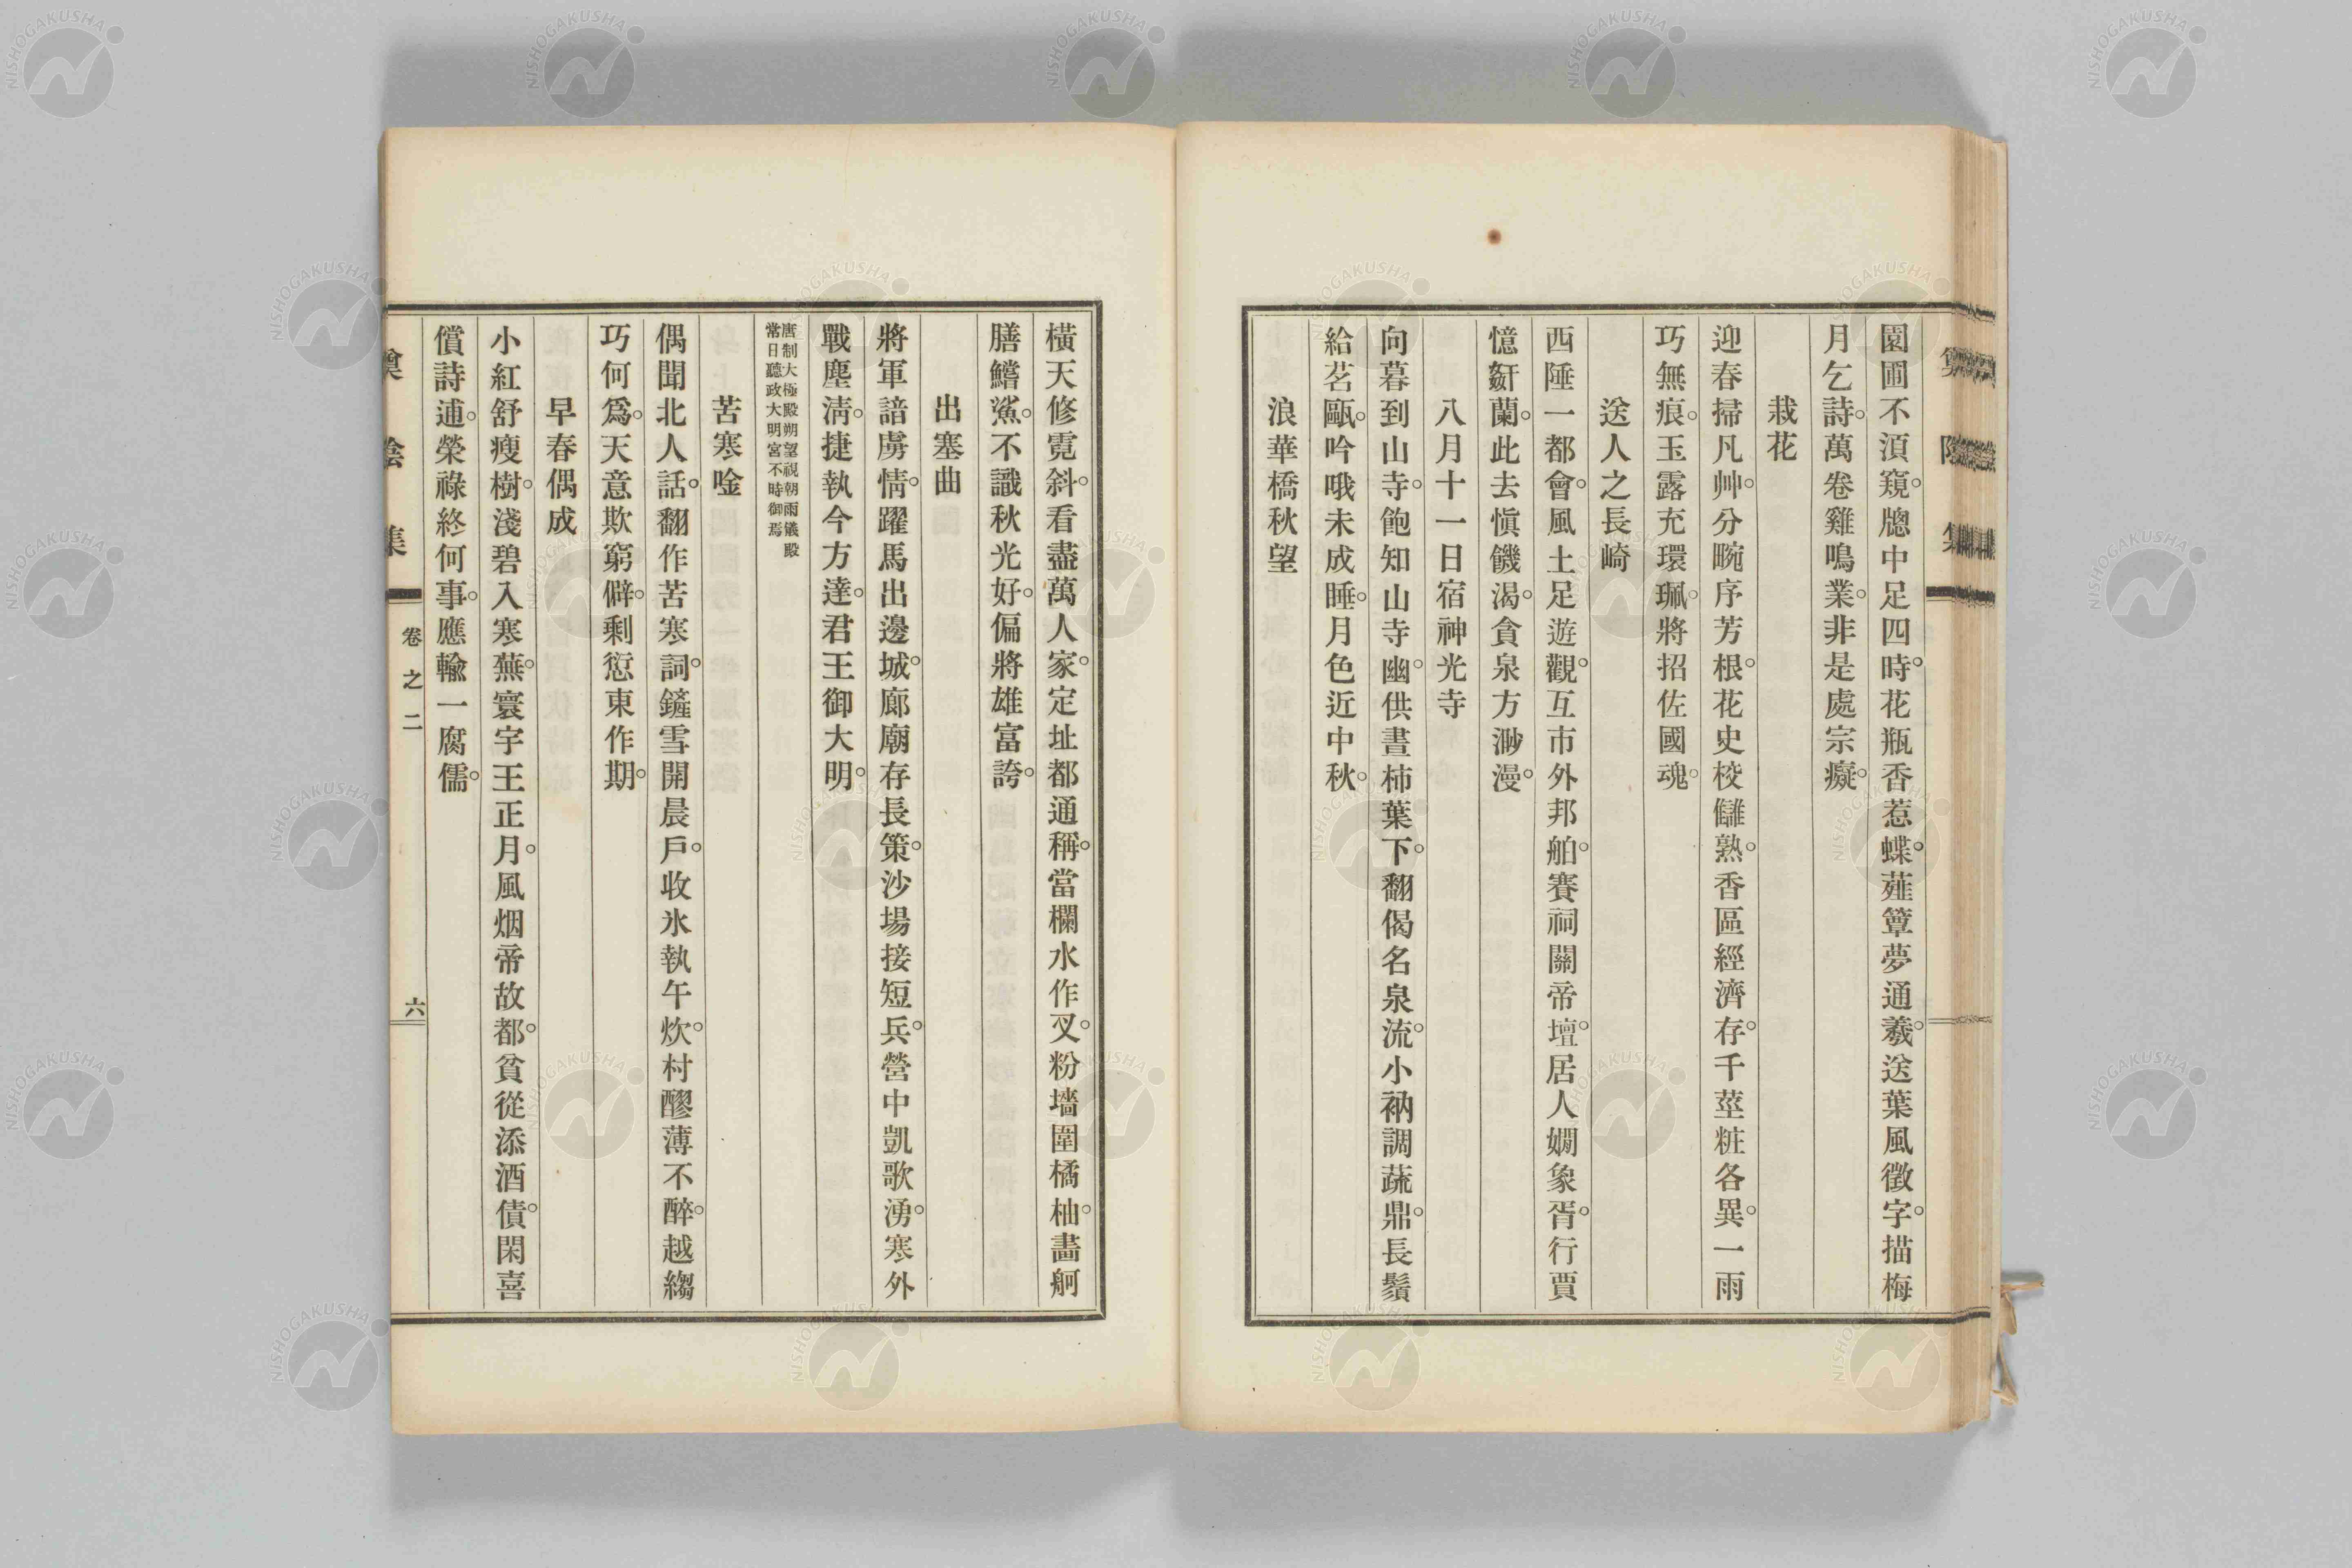 園圃不須窺。牕中足四時。花瓶香惹蝶。薤簟夢通羲。送葉風徵字。描梅
月乞詩。萬卷雞鳴業。非是處宗癡。
栽花
迎春掃凡艸。分畹序芳根。花史校讎熟。香區經濟存。千莖粧各異。一雨
巧無痕。玉露充環珮。將招佐國魂。
送人之長崎
西陲一都會。風土足遊觀。互市外邦舶。賽祠關帝壇。居人嫻象胥。行賈
憶姸蘭。此去愼饑渴。貪泉方渺漫。
八月十一日宿神光寺
向暮到山寺。飽知山寺幽。供晝柿葉下。翻偈名泉流。小衲調蔬鼎。長鬚
給茗甌。吟哦未成睡。月色近中秋。
浪華橋秋望
橫天修霓斜。看盡萬人家。定址都通稱。當欄水作叉。粉墻圍橘柚。畫舸
膳鱛鯊。不識秋光好。偏將雄富誇。
出塞曲
將軍諳虜情。躍馬出邊城。廊廟存長策。沙場接短兵。營中凱歌湧。寒外
戰塵淸。捷執今方達。君王御大明。
唐制大極殿朔望視朝兩儀殿
常日聽政大明宮不時御焉
苦寒唫
偶聞北人話。翻作苦寒詞。鏟雪開晨戶。收氷執午炊。村醪薄不醉。越縐
巧何爲。天意欺窮僻。剩愆東作期。
早春偶成
小紅舒瘦樹。淺碧入寒蕪。寰宇王正月。風烟帝故都。貧從添酒債。閑喜
償詩逋。榮祿終何事。應輸一腐儒。
卷之二
六